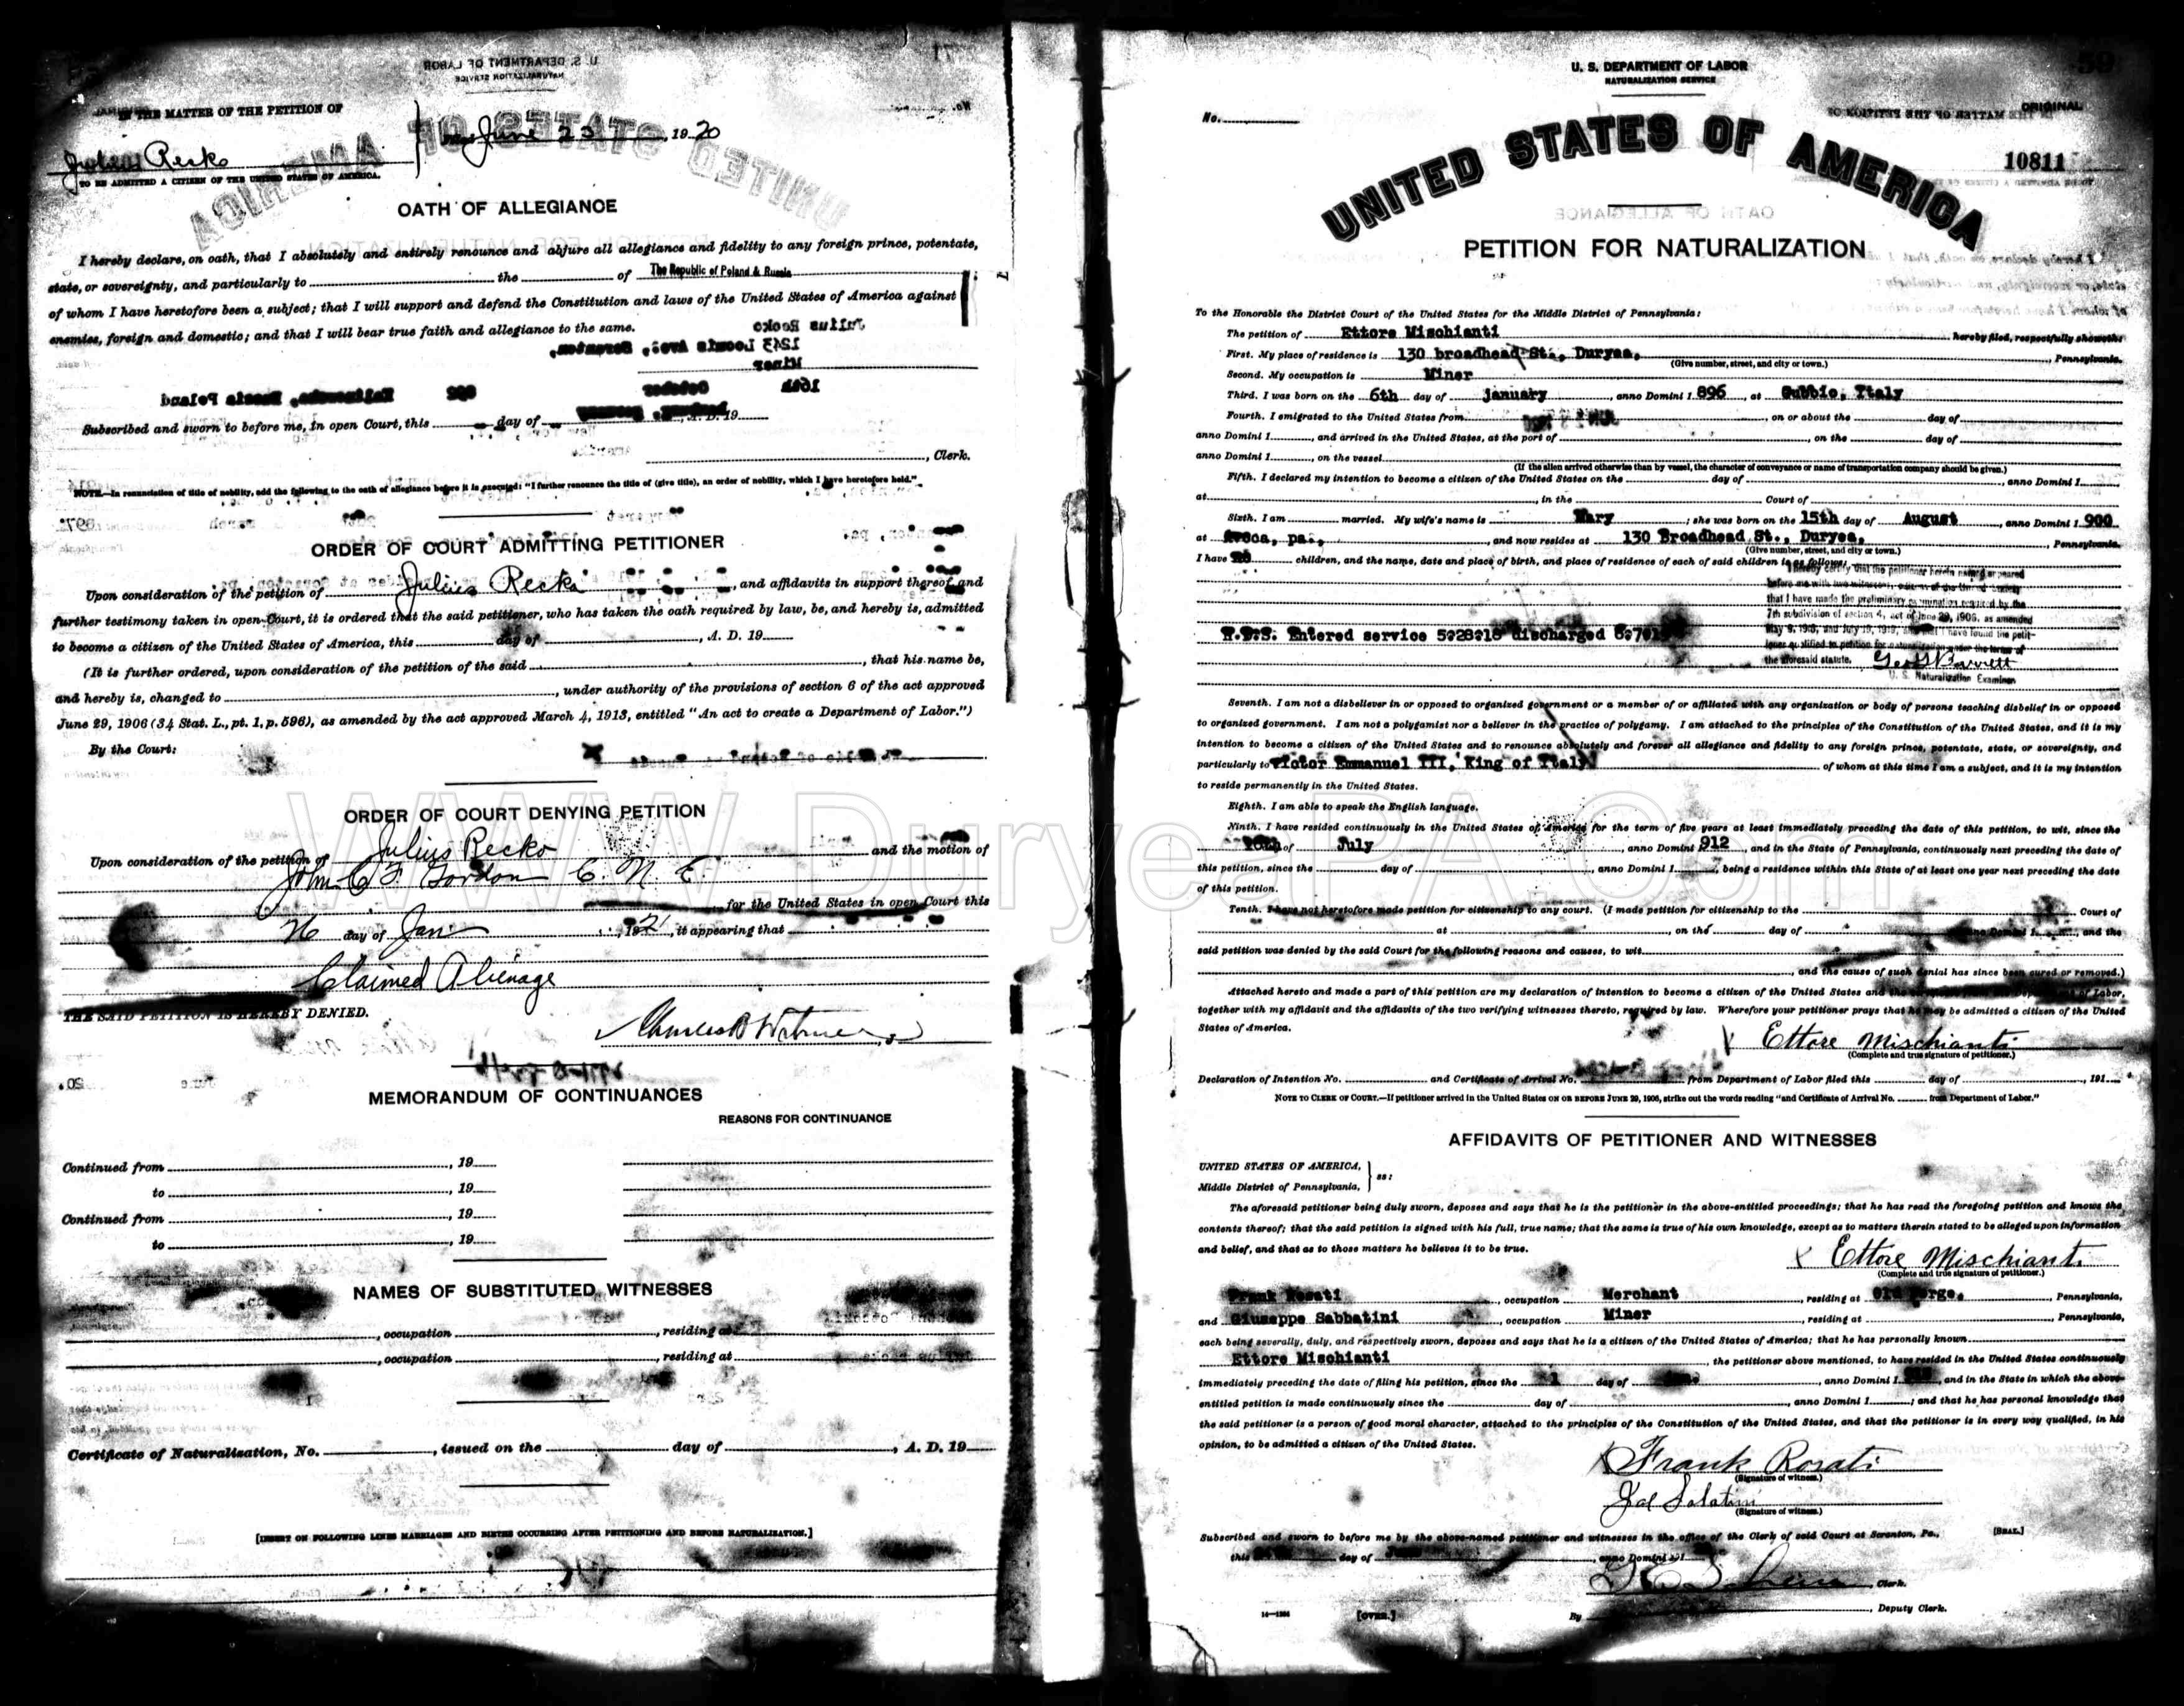 IN THE MATTER OF THE PETITION OF
Julius Recko
June 23 1920
TO BE ADMITTED A CITIZEN OF THE UNITED STATES OF AMERICA.
OATH OF ALLEGIANCE
I hereby declare, on oath, that I absolutely and entirely renounce and abjure all allegiance and fidelity to any foreign prince, potentate,
state, or sovereignty, and particularly to the of The Republic of Poland & Russia
of whom I have heretofore been a subject; that I will support and defend the Constitution and laws of the United States of America against
enemies, foreign and domestic; and that I will bear true faith and allegiance to the same.
Subscribed and sworn to before me, in open Court, this day of , A. D. 19
, Clerk.
NOTE.—In renunciation of title of nobility, add the following to the oath of allegiance before it is executed: "I further renounce the title of (give title), an order of nobility, which I have heretofore held."
ORDER OF COURT ADMITTING PETITIONER
Upon consideration of the petition of Julius Recko , and affidavits in support thereof and
further testimony taken in open Court, it is ordered that the said petitioner, who has taken the oath required by law, be, and hereby is, admitted
to become a citizen of the United States of America, this day of , A. D. 19
(It is further ordered, upon consideration of the petition of the said , that his name be,
and hereby is, changed to , under authority of the provisions of section 6 of the act approved
June 29, 1906 (34 Stat. L., pt. 1, p. 596), as amended by the act approved March 4, 1913, entitled "An act to create a Department of Labor.")
By the Court:
ORDER OF COURT DENYING PETITION
Upon consideration of the petition of Julius Recko and the motion of
John C F Gordon C. N. E.
for the United States in open Court this
26 day of Jan 1921, it appearing that
Claimed Alienage
THE SAID PETITION IS HEREBY DENIED.
Charles B Witmer
MEMORANDUM OF CONTINUANCES
REASONS FOR CONTINUANCE
Continued from , 19
to , 19
Continued from , 19
to , 19
NAMES OF SUBSTITUTED WITNESSES
, occupation , residing at
, occupation , residing at
Certificate of Naturalization, No. , issued on the day of , A. D. 19
[INSERT ON FOLLOWING LINES MARRIAGES AND BIRTHS OCCURRING AFTER PETITIONING AND BEFORE NATURALIZATION.]
U. S. DEPARTMENT OF LABOR
NATURALIZATION SERVICE
59
No.
ORIGINAL
UNITED STATES OF AMERICA
10811
PETITION FOR NATURALIZATION
To the Honorable the District Court of the United States for the Middle District of Pennsylvania:
The petition of Ettore Mischianti hereby filed, respectfully showeth:
First. My place of residence is 130 broadhead St., Duryea, , Pennsylvania.
(Give number, street, and city or town.)
Second. My occupation is Miner
Third. I was born on the 6th day of january , anno Domini 1 896 , at Gubbio, Italy
Fourth. I emigrated to the United States from , on or about the day of
anno Domini 1 , and arrived in the United States, at the port of , on the day of
anno Domini 1 , on the vessel
(If the alien arrived otherwise than by vessel, the character of conveyance or name of transportation company should be given.)
Fifth. I declared my intention to become a citizen of the United States on the day of , anno Domini 1
at , in the Court of
Sixth. I am married. My wife's name is Mary ; she was born on the 15th day of August , anno Domini 1 900
at Avoca, pa., , and now resides at 130 Broadhead St., Duryea, , Pennsylvania.
(Give number, street, and city or town.)
I have no children, and the name, date and place of birth, and place of residence of each of said children is as follows:
I hereby certify that the petitioner herein named appeared
that I have made the preliminary examination required by the
7th subdivision of section 4, act of June 29, 1906, as amended
May 9, 1918, and July 19, 1919, and that I have found the petit-
ioner qualified to petition for naturalization under the terms of
the aforesaid statute. Geo S Barrett
U. S. Naturalization Examiner
Entered service 5:28:18 discharged
Seventh. I am not a disbeliever in or opposed to organized government or a member of or affiliated with any organization or body of persons teaching disbelief in or opposed
to organized government. I am not a polygamist nor a believer in the practice of polygamy. I am attached to the principles of the Constitution of the United States, and it is my
intention to become a citizen of the United States and to renounce absolutely and forever all allegiance and fidelity to any foreign prince, potentate, state, or sovereignty, and
particularly to Victor Emmanuel III, King of Italy of whom at this time I am a subject, and it is my intention
to reside permanently in the United States.
Eighth. I am able to speak the English language.
Ninth. I have resided continuously in the United States of America for the term of five years at least immediately preceding the date of this petition, to wit, since the
of July , anno Domini 1 912 , and in the State of Pennsylvania, continuously next preceding the date of
this petition, since the day of , anno Domini 1 , being a residence within this State of at least one year next preceding the date
of this petition.
Tenth. I have not heretofore made petition for citizenship to any court. (I made petition for citizenship to the Court of
at , on the day of , anno Domini 1 , and the
said petition was denied by the said Court for the following reasons and causes, to wit
, and the cause of such denial has since been cured or removed.)
Attached hereto and made a part of this petition are my declaration of intention to become a citizen of the United States and the of Labor,
together with my affidavit and the affidavits of the two verifying witnesses thereto, required by law. Wherefore your petitioner prays that he may be admitted a citizen of the United
States of America.
Ettore Mischianti
(Complete and true signature of petitioner.)
Declaration of Intention No. and Certificate of Arrival No. from Department of Labor filed this day of , 191
NOTE TO CLERK OF COURT.—If petitioner arrived in the United States ON OR BEFORE JUNE 29, 1906, strike out the words reading "and Certificate of Arrival No. from Department of Labor."
AFFIDAVITS OF PETITIONER AND WITNESSES
UNITED STATES OF AMERICA,
Middle District of Pennsylvania, } ss:
The aforesaid petitioner being duly sworn, deposes and says that he is the petitioner in the above-entitled proceedings; that he has read the foregoing petition and knows the
contents thereof; that the said petition is signed with his full, true name; that the same is true of his own knowledge, except as to matters therein stated to be alleged upon information
and belief, and that as to those matters he believes it to be true.
X Ettore Mischianti
(Complete and true signature of petitioner.)
Frank Rosati , occupation Merchant , residing at Old Forge, Pennsylvania,
and Giuseppe Sabbatini , occupation Miner , residing at , Pennsylvania,
each being severally, duly, and respectively sworn, deposes and says that he is a citizen of the United States of America; that he has personally known
Ettore Mischianti , the petitioner above mentioned, to have resided in the United States continuously
immediately preceding the date of filing his petition, since the 1 day of , anno Domini 1 , and in the State in which the above-
entitled petition is made continuously since the day of , anno Domini 1 ; and that he has personal knowledge that
the said petitioner is a person of good moral character, attached to the principles of the Constitution of the United States, and that the petitioner is in every way qualified, in his
opinion, to be admitted a citizen of the United States.
Frank Rosati
(Signature of witness.)
(Signature of witness.)
Subscribed and sworn to before me by the above-named petitioner and witnesses in the office of the Clerk of said Court at Scranton, Pa., [SEAL.]
this day of , anno Domini 191
, Clerk.
14—1234 [OVER.] By , Deputy Clerk.
WWW.DuryeaPA.Com